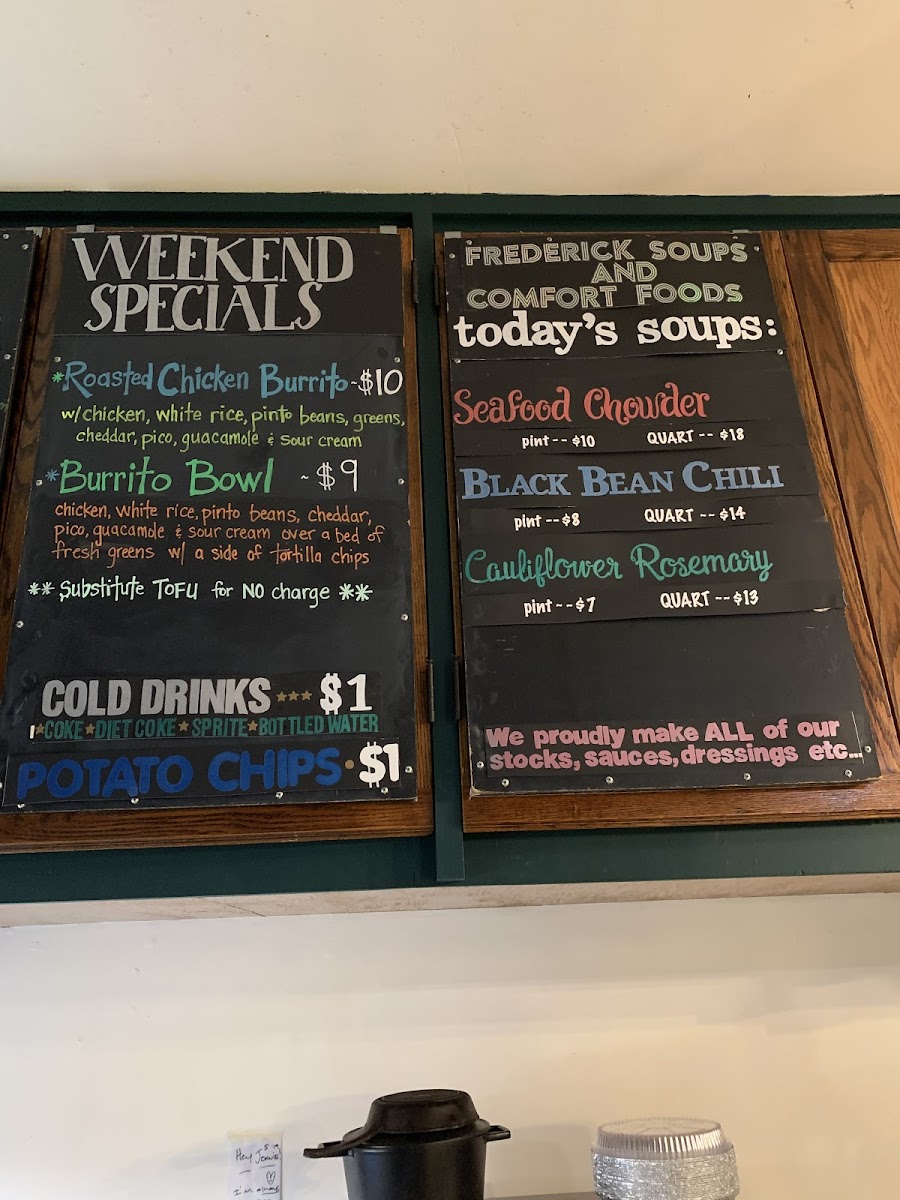 WEEKEND
SPECIALS
*Roasted Chicken Burrito ~$10
w/chicken, white rice, pinto beans, greens,
cheddar, pico, guacamole & sour cream
*Burrito Bowl ~$9
chicken, white rice, pinto beans, cheddar,
pico, guacamole & sour cream over a bed of
fresh greens w/ a side of tortilla chips
** Substitute TOFU for NO charge **
COLD DRINKS *** $1
*COKE*DIET COKE*SPRITE*BOTTLED WATER
POTATO CHIPS·$1
FREDERICK SOUPS
AND
COMFORT FOODS
today's soups:
Seafood Chowder
pint -- $10 QUART -- $18
BLACK BEAN CHILI
pint --$8 QUART --$14
Cauliflower Rosemary
pint --$7 QUART --$13
We proudly make ALL of our
stocks, sauces, dressings etc...
Hey
I'm